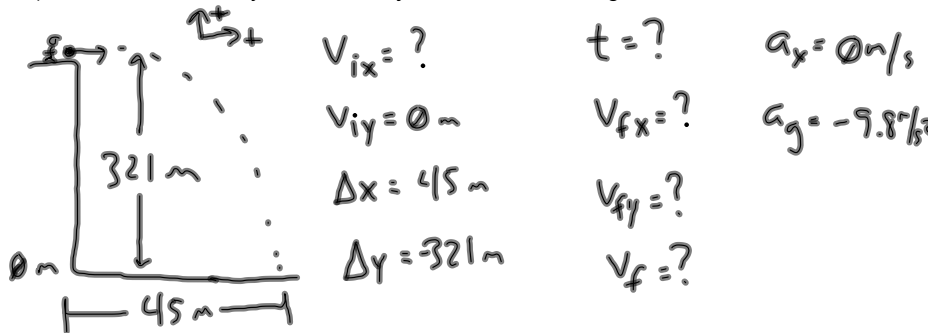 +
+
321 m
0 m
45 m
Vix = ?
Viy = 0 m
Δx = 45 m
Δy = -321 m
t = ?
Vfx = ?
Vfy = ?
Vf = ?
ax = 0 m/s
ag = -9.8 m/s²